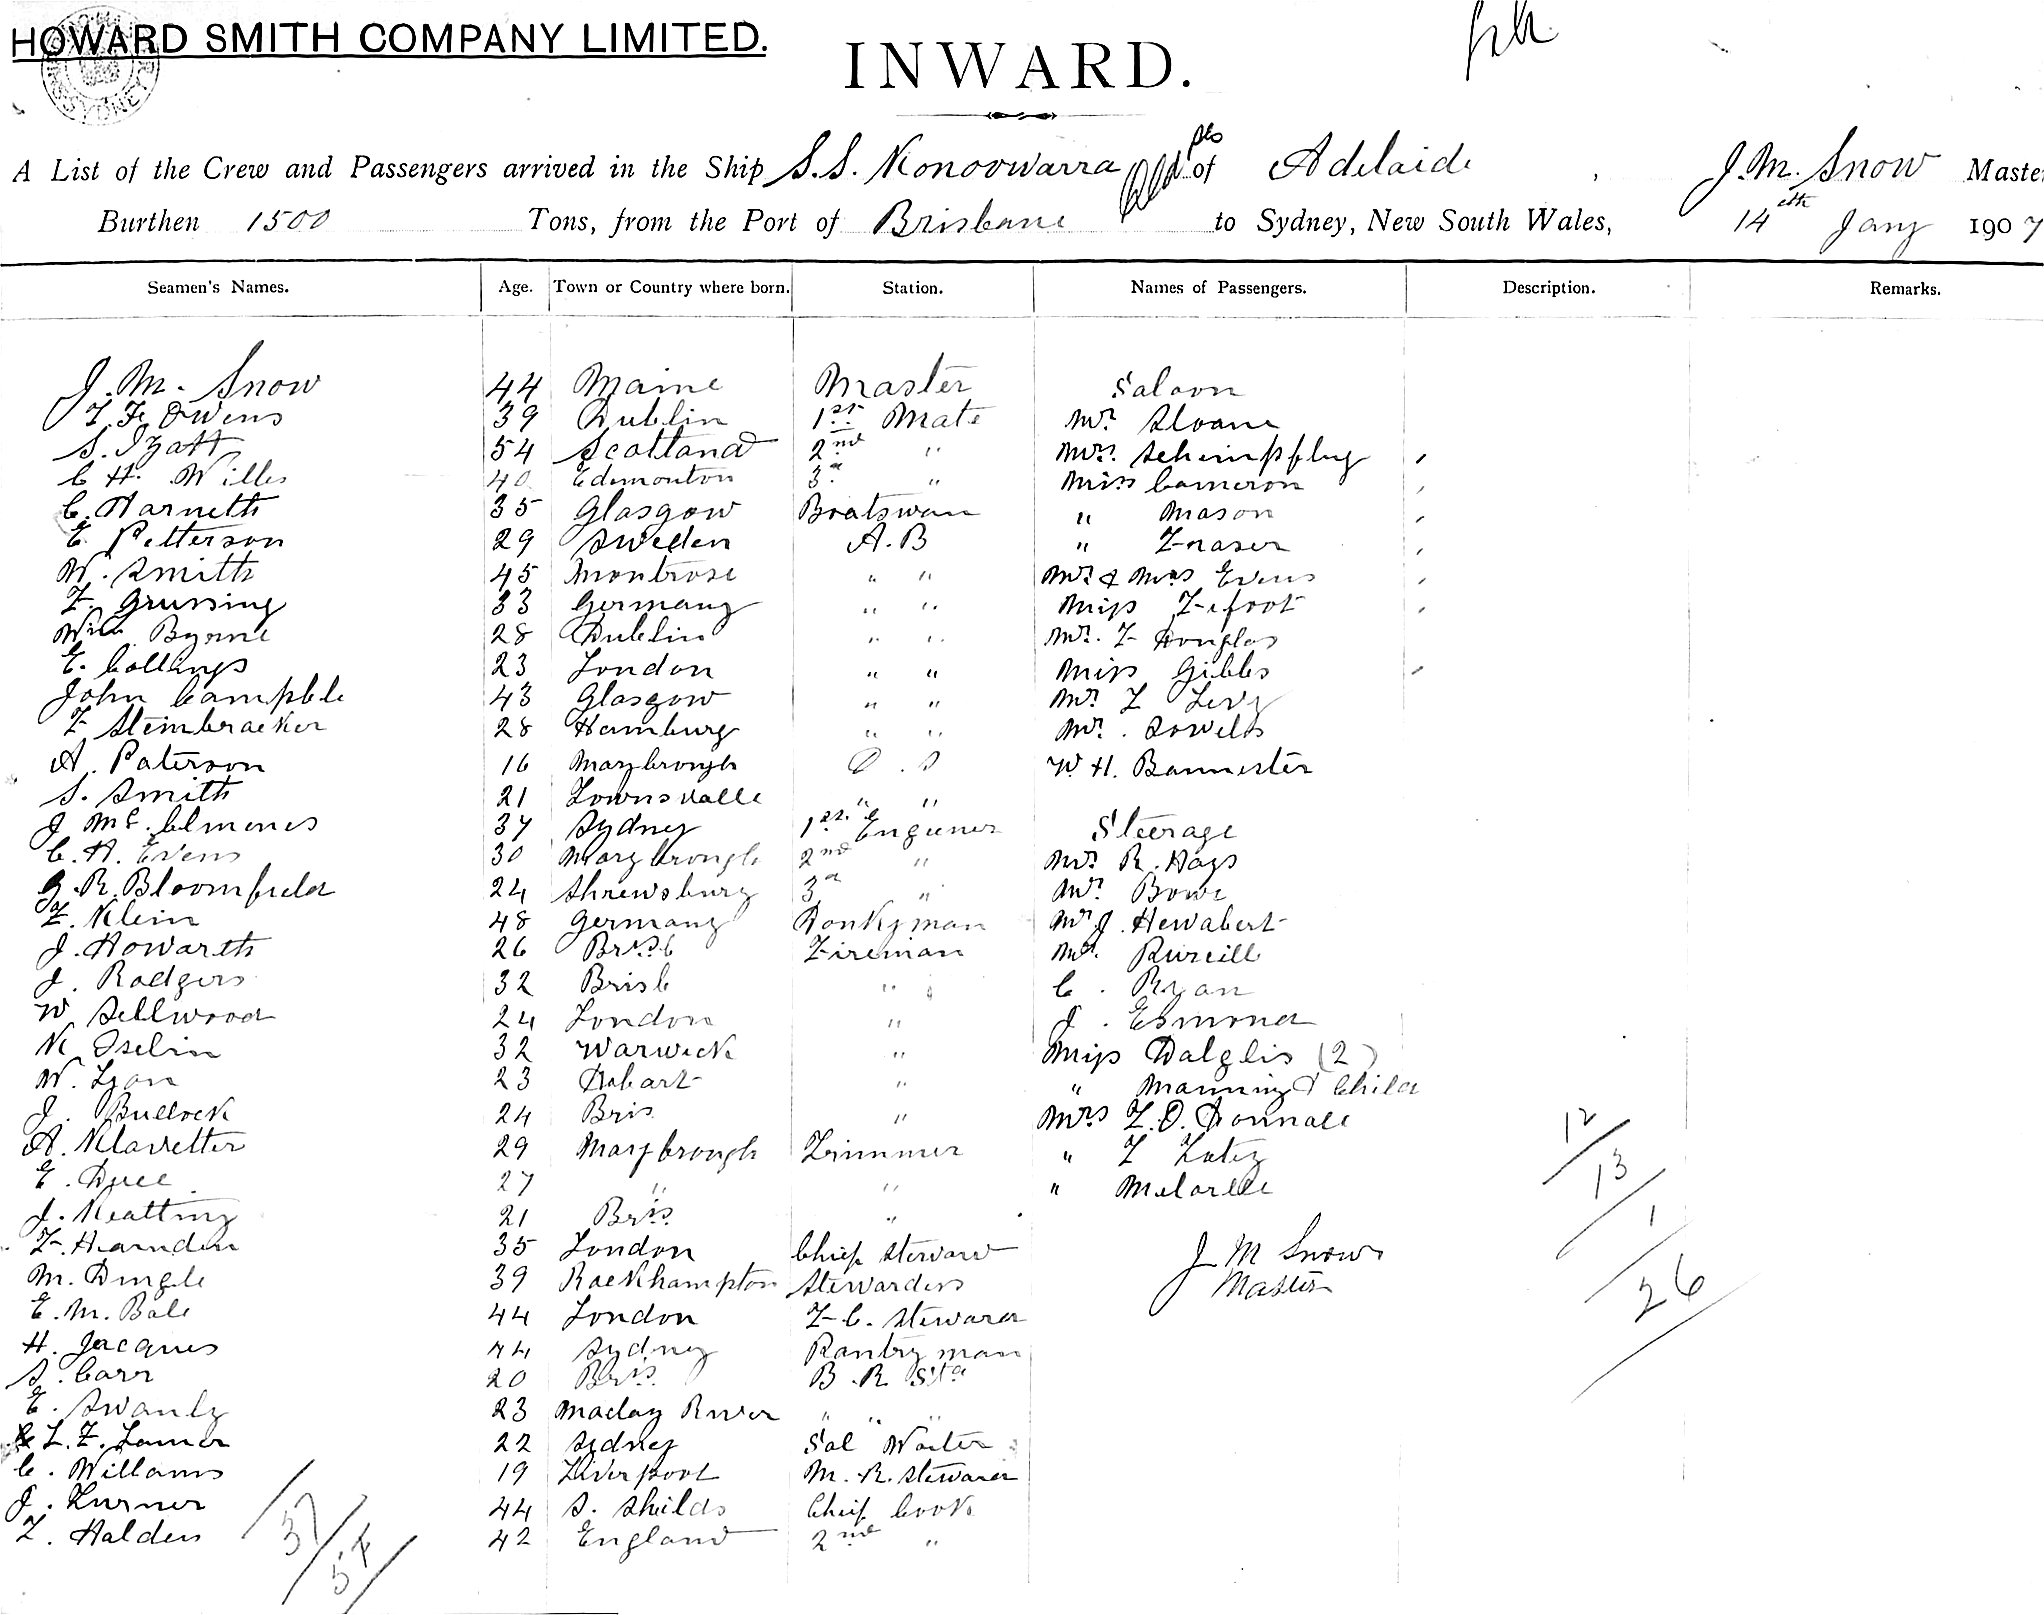 HOWARD SMITH COMPANY LIMITED.
SYDNEY
INWARD.
A List of the Crew and Passengers arrived in the Ship S.S. Konoowarra of Adelaide, J.M. Snow Master
Burthen 1500 Tons, from the Port of Brisbane to Sydney, New South Wales, 14th Jany 1907
Seamen's Names. Age. Town or Country where born. Station. Names of Passengers. Description. Remarks.
J. M. Snow 44 Maine Master Saloon
T. F. Owens 39 Dublin 1st. Mate Mr. Sloane
S. Izatt 54 Scotland 2nd " Mrs. Schimpflug
C H. Willes 40 Edmonton 3d " Miss Cameron
C. Harneth 35 Glasgow Boatswan " Mason
E. Petterson 29 Sweden A.B " Fraser
W. Smith 45 Montrose " " Mr & Mrs Evens
F. Grussing 33 Germany " " Miss
Wm Byrne 28 Dublin " " Mr. F Douglas
E. Collings 23 London " " Miss Gibbs
John Campble 43 Glasgow " " Mr. L Levy
F Steinbracker 28 Hamburg " " Mr.
A. Paterson 16 Marybrough O.S W. H. Bannester
S. Smith 21 Townsvalle " "
J Mc. Clmenes 37 Sydney 1st. Enguner Steerage
C. H. Evens 30 Marybrough 2nd " Mr. R. Hays
G. R. Bloomfield 24 Shrewsbury 3d " Mr. Bowe
F. Klein 48 Germany Donkyman Mr J. Hewabert
J. Howarth 26 Brisb Fireman Mr.
J. Rodgers 32 Brisb " " C. Ryan
W Sellwood 24 London " J. Esmond
K Iselin 32 Warwick " Miss Dalglis (2)
W. Lyon 23 Hobart " " Manning & Child
J. Bullock 24 Bris " Mrs L. O. Donnall
A. Klavetter 29 Marybrough Trimmer "
E. Duce 27 " " "
J. Keatting 21 Bris. "
F. Hearnden 35 London Chief Steward J M Snow
M. Dingle 39 Rackhampton Stewardess Master
E. M. Bale 44 London F-C. Steward
H. Jacques 44 Sydney Pantry man
S. Carr 20 Bris. B. R Std
E. Swanly 23 Maclay River " " "
L. F. Lamer 22 Sydney Sal Waiter
C. Willams 19 Liverpool M. R. Steward
J. Turner 44 S. Shilds Chief Cook
T. Halden 42 England 2nd "
12
13
1
26
37
54